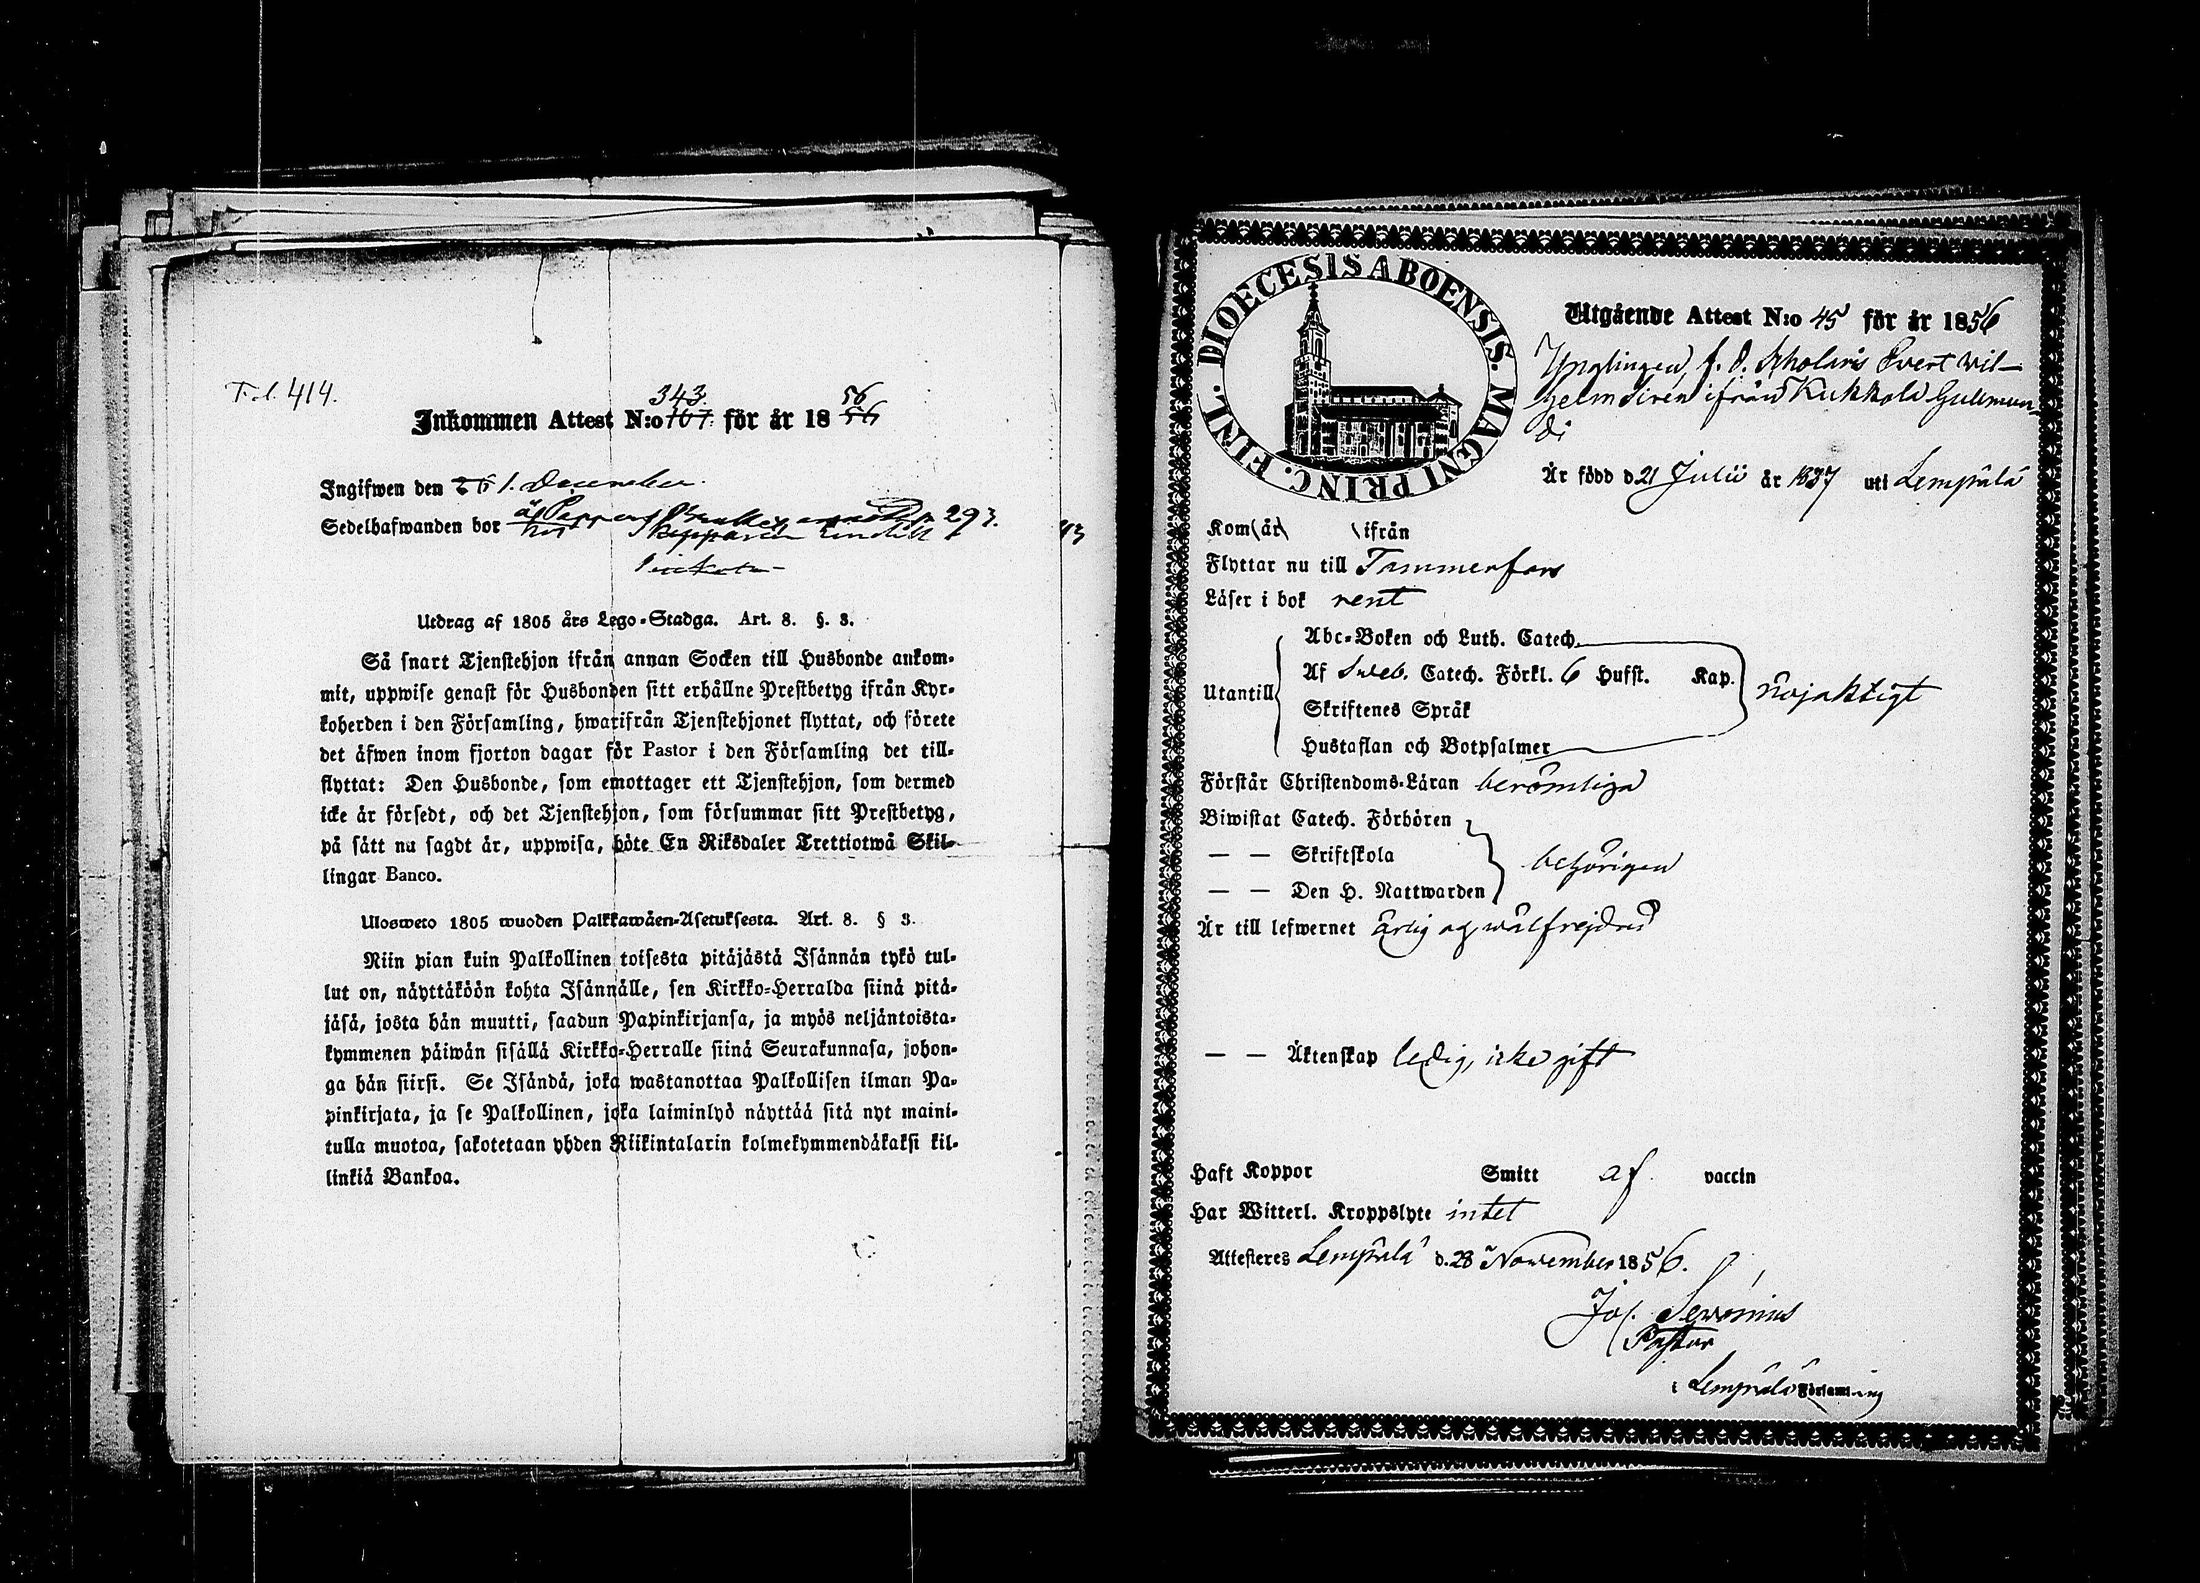 Fol. 414.
343. 56
Inkommen Attest N:o 107. för år 18 56
Ingifwen den 26 1. December.
Sedelhafwanden bor 293.
hos Skepparen
Utdrag af 1805 års Lego-Stadga. Art. 8. §. 3.
Så snart Tjenstehjon ifrån annan Socken till Husbonde ankom-
mit, uppwise genast för Husbonden sitt erhållne Prestbetyg ifrån Kyr-
koherden i den Församling, hwarifrån Tjenstehjonet flyttat, och förete
det äfwen inom fjorton dagar för Pastor i den Församling det till-
flyttat: Den Husbonde, som emottager ett Tjenstehjon, som dermed
icke är försedt, och det Tjenstehjon, som försummar sitt Prestbetyg,
på sätt nu sagdt är, uppwisa, böte En Riksdaler Trettiotwå Skil-
lingar Banco.
Ulosweto 1805 wuoden Palkkawäen-Asetuksesta. Art. 8. § 3.
Niin pian kuin Palkollinen toisesta pitäjästä Isännän tykö tul-
lut on, näyttäköön kohta Isännälle, sen Kirkko-Herralda siinä pitä-
jäsä, josta hän muutti, saadun Papinkirjansa, ja myös neljäntoista-
kymmenen päiwän sisällä Kirkko-Herralle siinä Seurakunnasa, johon-
ga hän siirsi. Se Isändä, joka wastanottaa Palkollisen ilman Pa-
pinkirjata, ja se Palkollinen, joka laiminlyö näyttää sitä nyt maini-
tulla muotoa, sakotetaan yhden Riikintalarin kolmekymmendäkaksi kil-
linkiä Bankoa.
FINL. DIOECESIS ABOENSIS. MAGNI PRINC.
Utgående Attest N:o 45 för år 1856
Ynglingen, f. d. Scholaris Evert Wil-
helm Sirén ifrån Kukkola Gulman-
di
Är född d 21 Julii år 1837 uti Lempälä
Kom (år) ifrån
Flyttar nu till Tammerfors
Läser i bok rent
Abc-Boken och Luth. Catech.
Utantill Af Sweb. Catech. Förkl. 6 Hufst. Kap. nöjaktigt
Skriftenes Språk
Hustaflan och Botpsalmer
Förstår Christendoms-Läran berömliga
Biwistat Catech. Förhören
— — Skriftskola behörigen
— — Den H. Nattwarden
Är till lefwernet ärlig och wälfrejdad
— — Äktenskap ledig, icke gift
Haft Koppor Smitt af vaccin
Har Witterl. Kroppslyte intet
Attesteres Lempälä d. 28 November 1856.
Jos. Serenius
Pastor
i Lempälä Församling